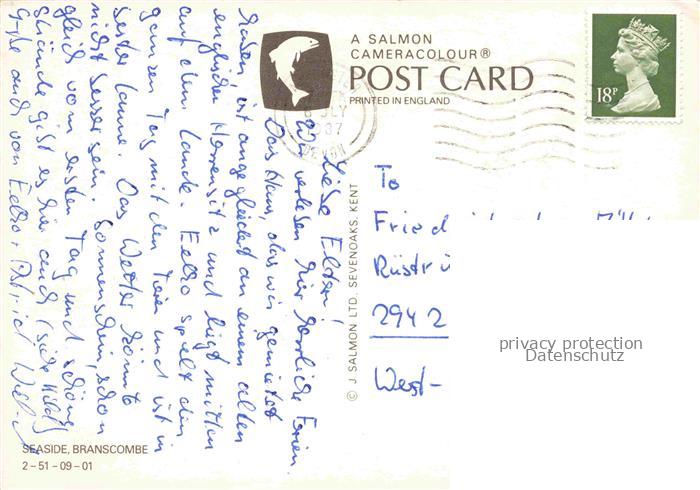 A SALMON
CAMERACOLOUR®
POST CARD
PRINTED IN ENGLAND
18P
JLY
DEVON
© J. SALMON LTD. SEVENOAKS. KENT
Liebe Eltern!
Wir verleben hier herrliche Ferien.
Das Haus, das wir gemietet
haben ist angegliedert an einem alten
englischen Herrensitz und liegt mitten
auf dem Lande. Eelko spielt den
ganzen Tag mit den Tieren und ist in
bester Laune. Das Wetter könnte
nicht besser sein. Sonnenschein, schon
gleich vom ersten Tag und schöne
Strände gibt es hier auch (siehe Bild)
Grüße auch von Eelko + Astrid
To
Fried
Rüstr
2942
West-
privacy protection
Datenschutz
SEASIDE, BRANSCOMBE
2-51-09-01